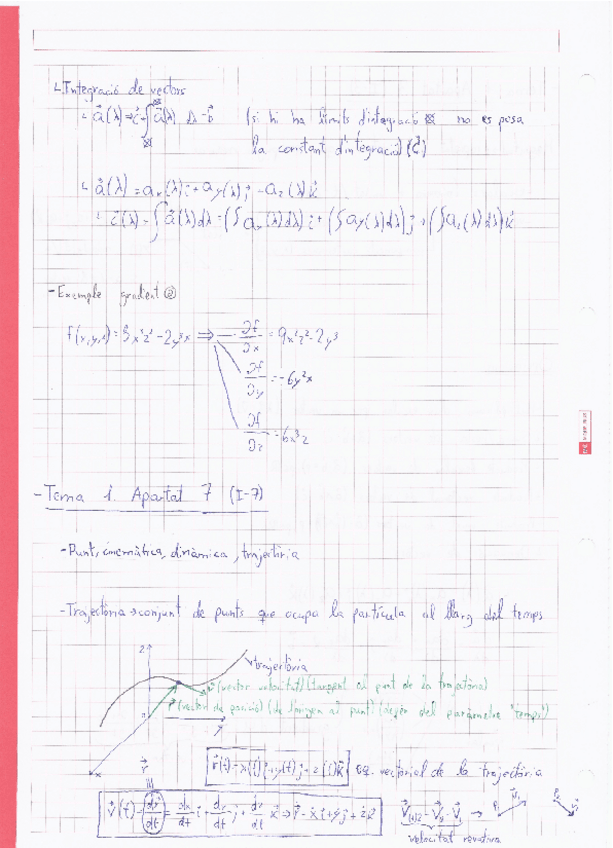 Integració de vectors
(si hi ha límits d'integració no es posa
la constant d'integració) (C⃗)
a⃗(λ) = aₓ(λ)i⃗ + a_y(λ)j⃗ - a_z(λ)k⃗
∫a⃗(λ)dλ = (∫aₓ(λ)dλ)i⃗ + (∫a_y(λ)dλ)j⃗ + (∫a_z(λ)dλ)k⃗
- Exemple gradent
f(x,y,z) = 3x³z² - 2y³x ⇒ ∂f/∂x = 9x²z² - 2y³
∂f/∂y = -6y²x
∂f/∂z = 6x³z
- Tema 1. Apartat 7 (I-7)
- Punt, cinemàtica, dinàmica, trajectòria
- Trajectòria → conjunt de punts que ocupa la partícula al llarg del temps
z
trajectòria
v⃗ (vector velocitat) (tangent al punt de la trajectòria)
r⃗ (vector de posició) (de l'origen al punt) (depèn del paràmetre "temps")
y
x
r⃗(t) = x(t)i⃗ + y(t)j⃗ + z(t)k⃗ eq. vectorial de la trajectòria
r⃗
v⃗(t) = dr⃗/dt = dx/dt i⃗ + dy/dt j⃗ + dz/dt k⃗
velocitat relativa